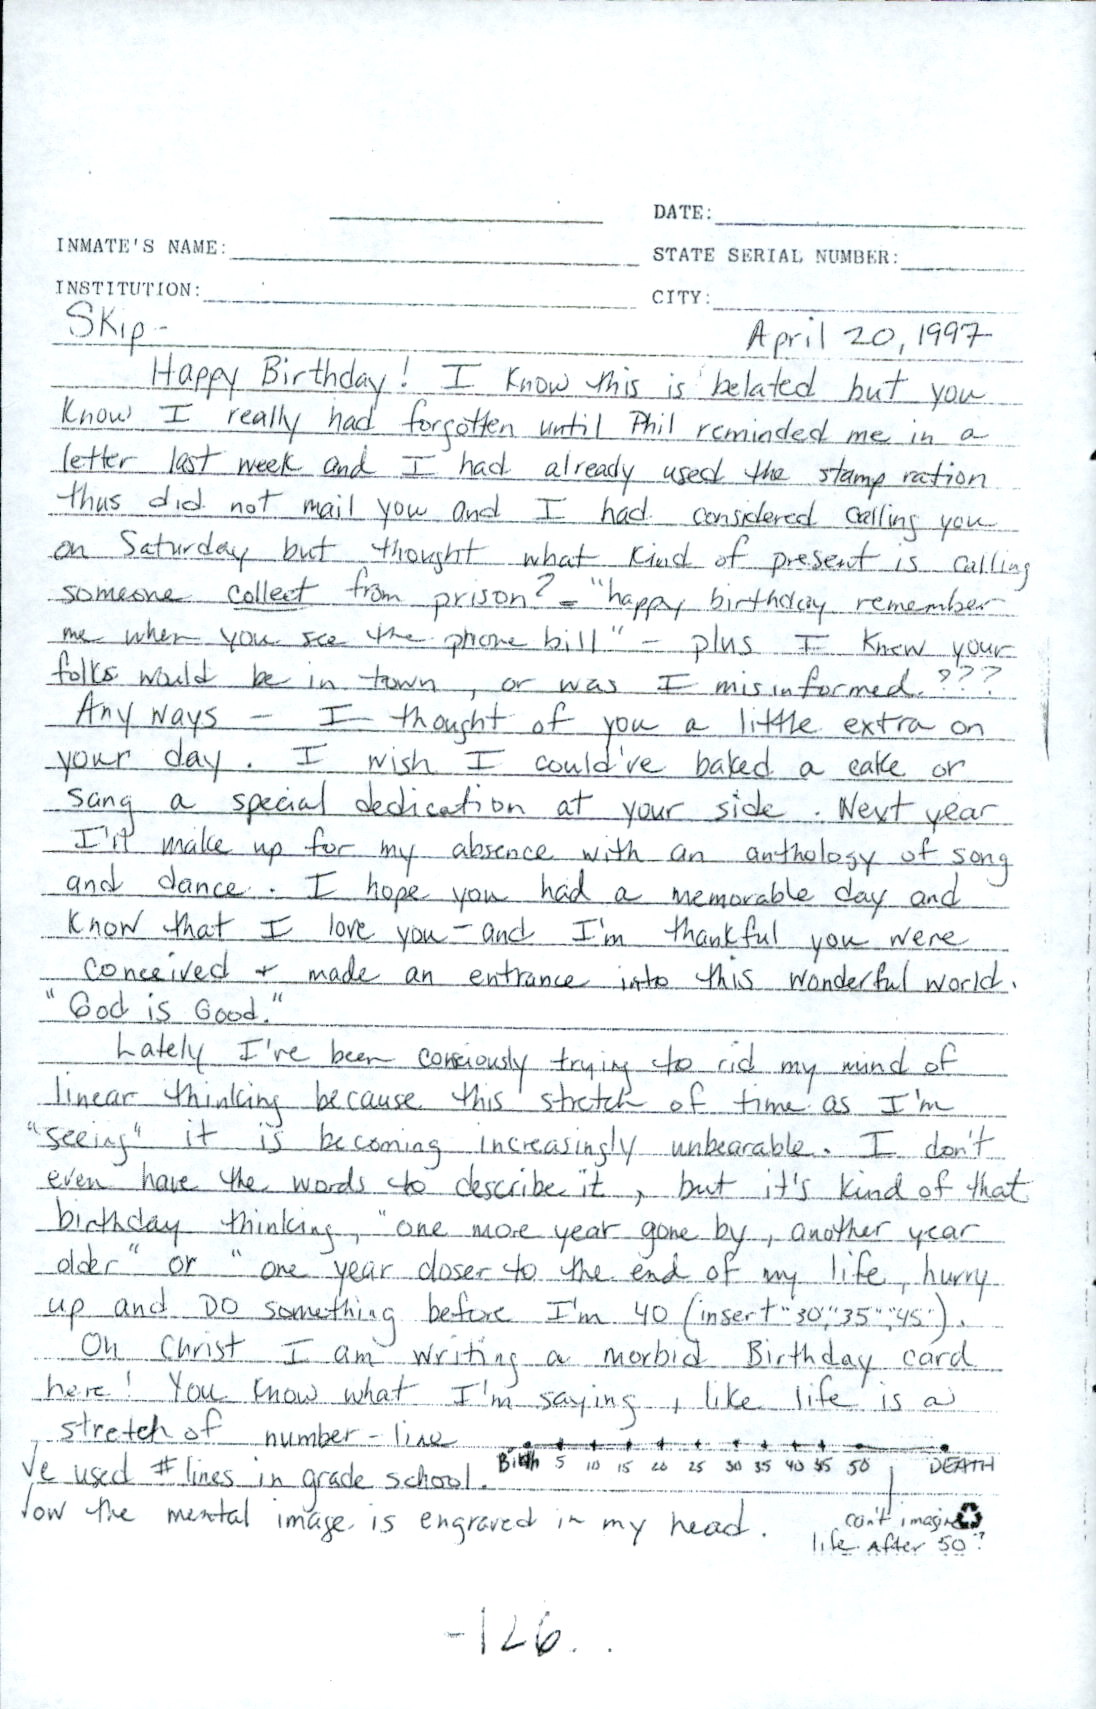 DATE:
INMATE'S NAME:
STATE SERIAL NUMBER:
INSTITUTION:
CITY:
Skip -
April 20, 1997
Happy Birthday! I know this is belated but you
know I really had forgotten until Phil reminded me in a
letter last week and I had already used the stamp ration
thus did not mail you and I had considered calling you
on Saturday but thought what kind of present is calling
someone collect from prison? - "happy birthday remember
me when you see the phone bill" - plus I knew your
folks would be in town, or was I misinformed.???
Any ways - I thought of you a little extra on
your day. I wish I could've baked a cake or
sang a special dedication at your side. Next year
I'll make up for my absence with an anthology of song
and dance. I hope you had a memorable day and
know that I love you - and I'm thankful you were
conceived + made an entrance into this wonderful world.
"God is Good."
Lately I've been consciously trying to rid my mind of
linear thinking because this stretch of time as I'm
"seeing" it is becoming increasingly unbearable. I don't
even have the words to describe it, but it's kind of that
birthday thinking, "one more year gone by, another year
older" or "one year closer to the end of my life, hurry
up and DO something before I'm 40 (insert "30","35","45").
Oh Christ I am writing a morbid Birthday card
here! You know what I'm saying, like life is a
stretch of number-line
Birth 5 10 15 20 25 30 35 40 45 50 DEATH
've used #lines in grade school.
low the mental image is engraved in my head.
can't imagine
life after 50?
-126.